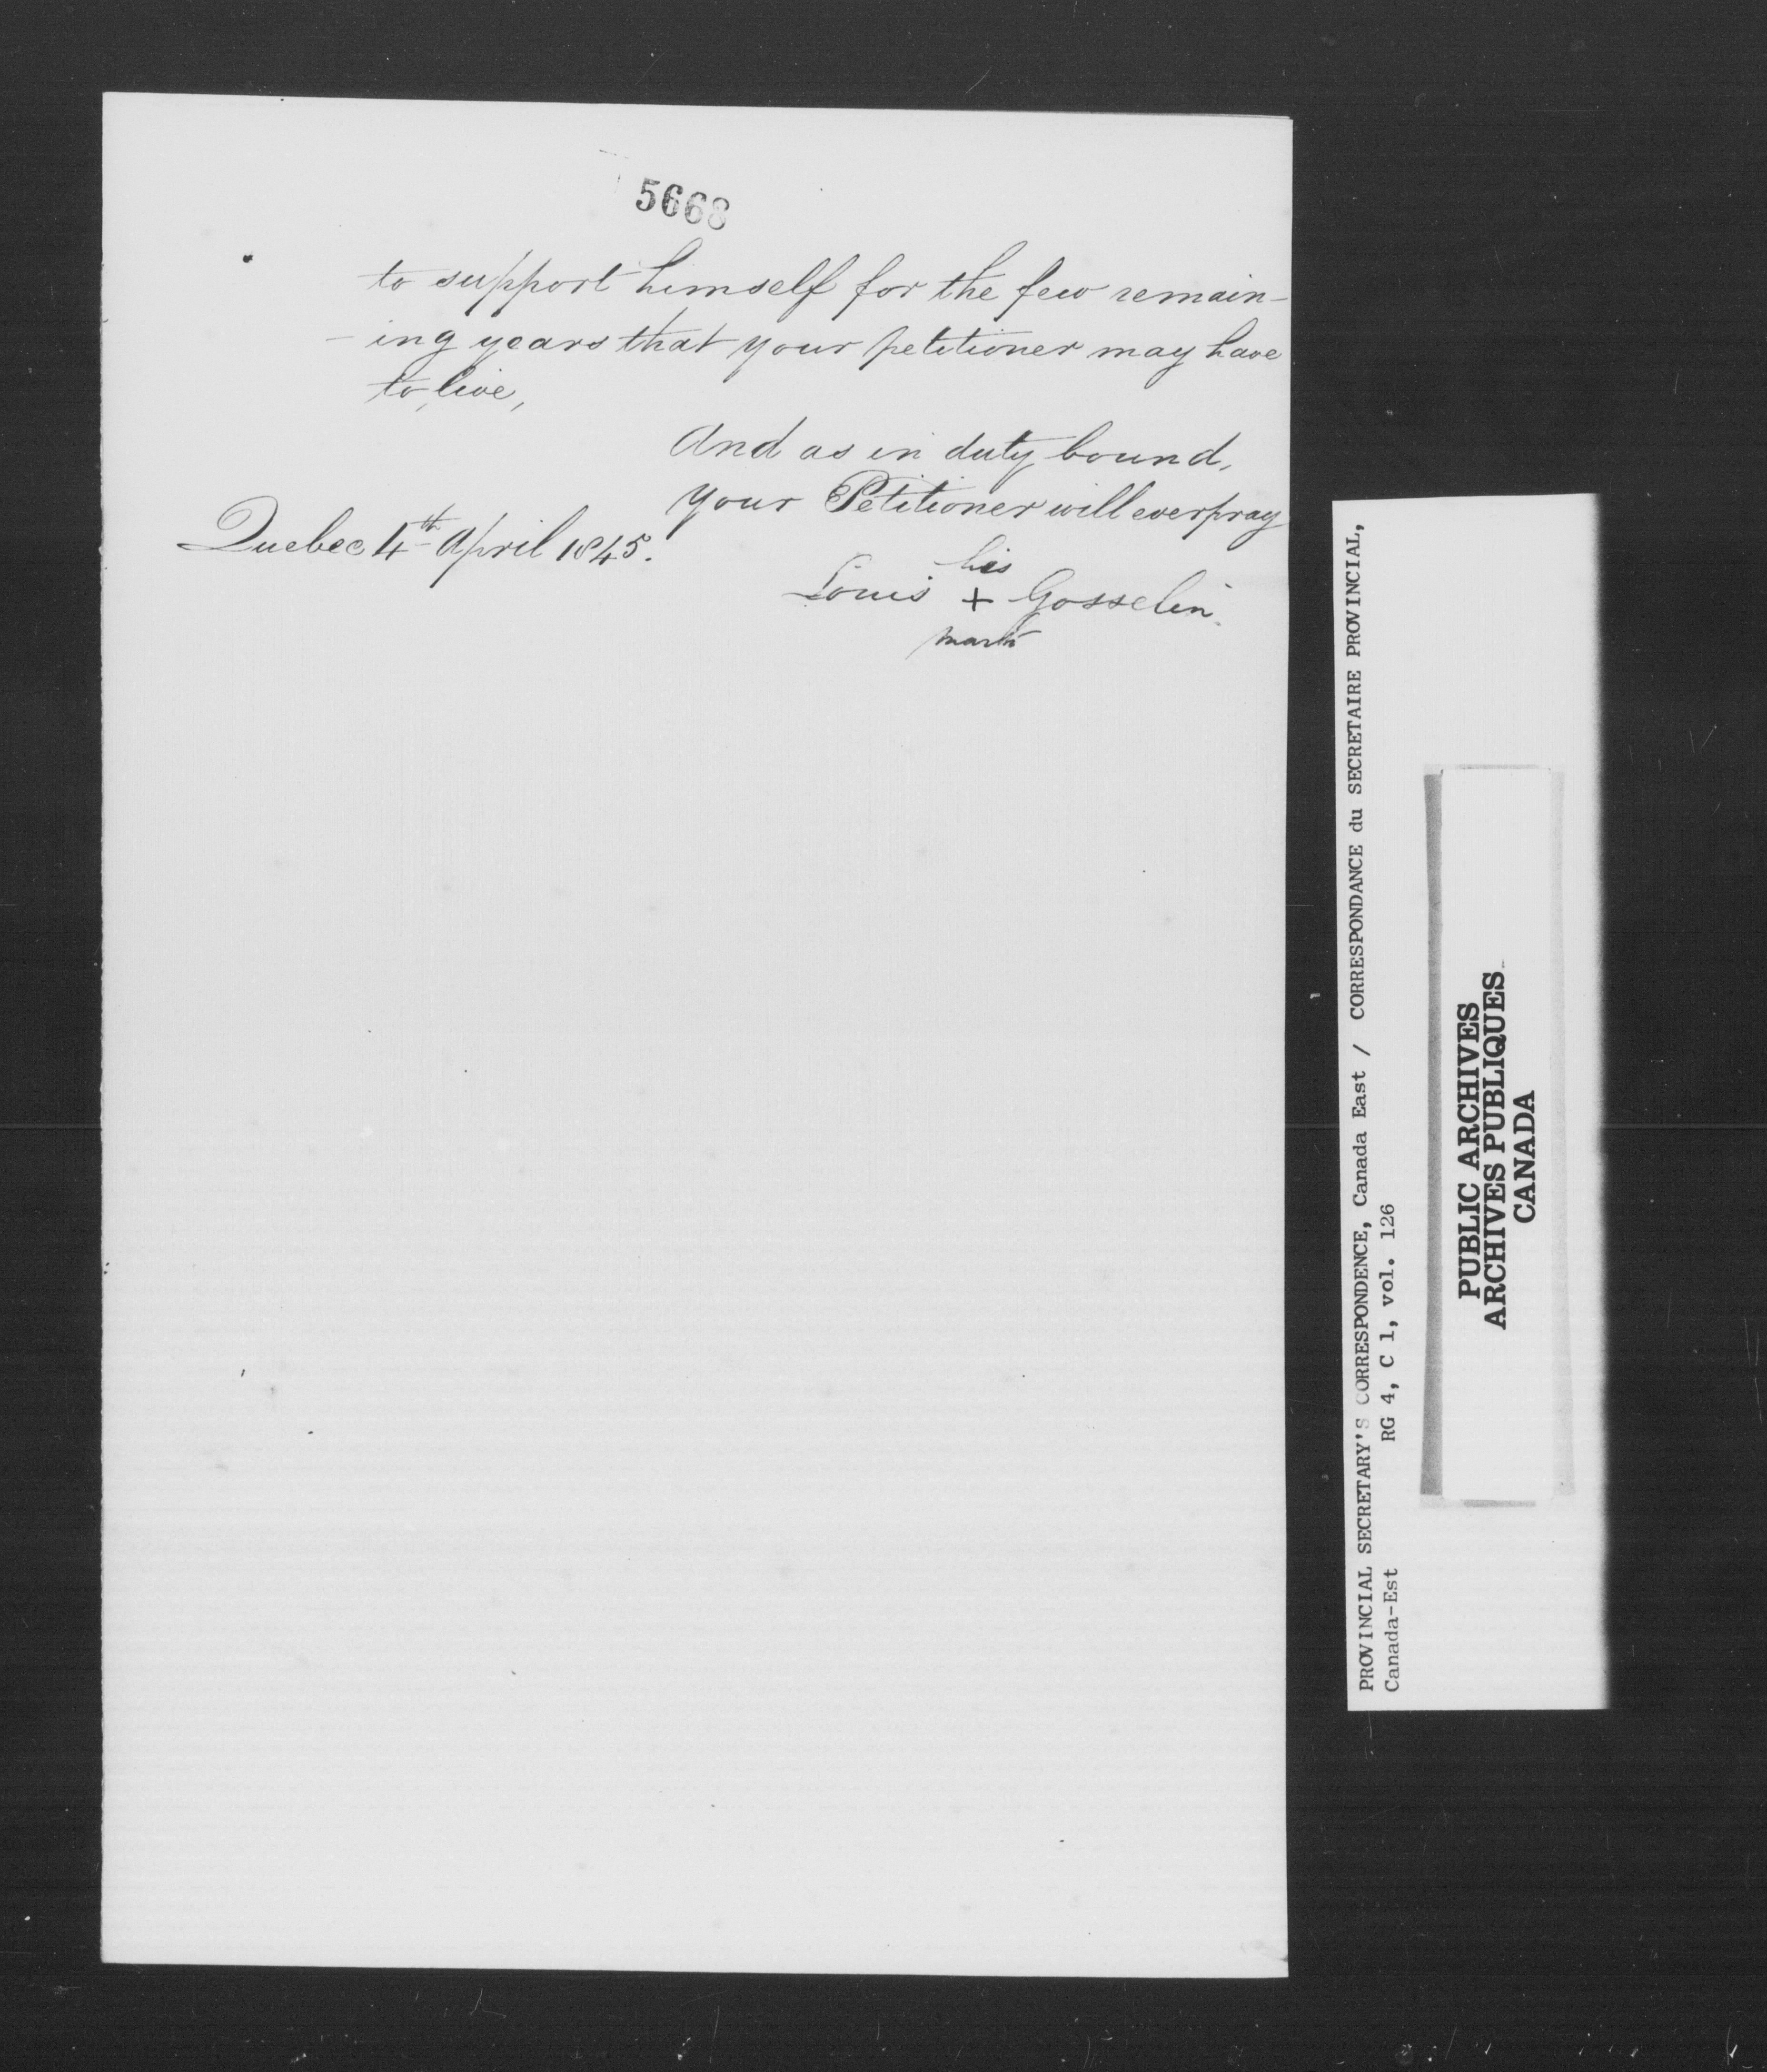 5668
to support himself for the few remain-
- ing years that your petitioner may have
to live,
And as in duty bound,
your Petitioner will ever pray
Quebec 4th April 1845.
his
Louis + Gosselin
mark
PROVINCIAL SECRETARY'S CORRESPONDENCE, Canada East / CORRESPONDANCE du SECRETAIRE PROVINCIAL,
Canada-Est RG 4, C 1, vol. 126
PUBLIC ARCHIVES
ARCHIVES PUBLIQUES
CANADA